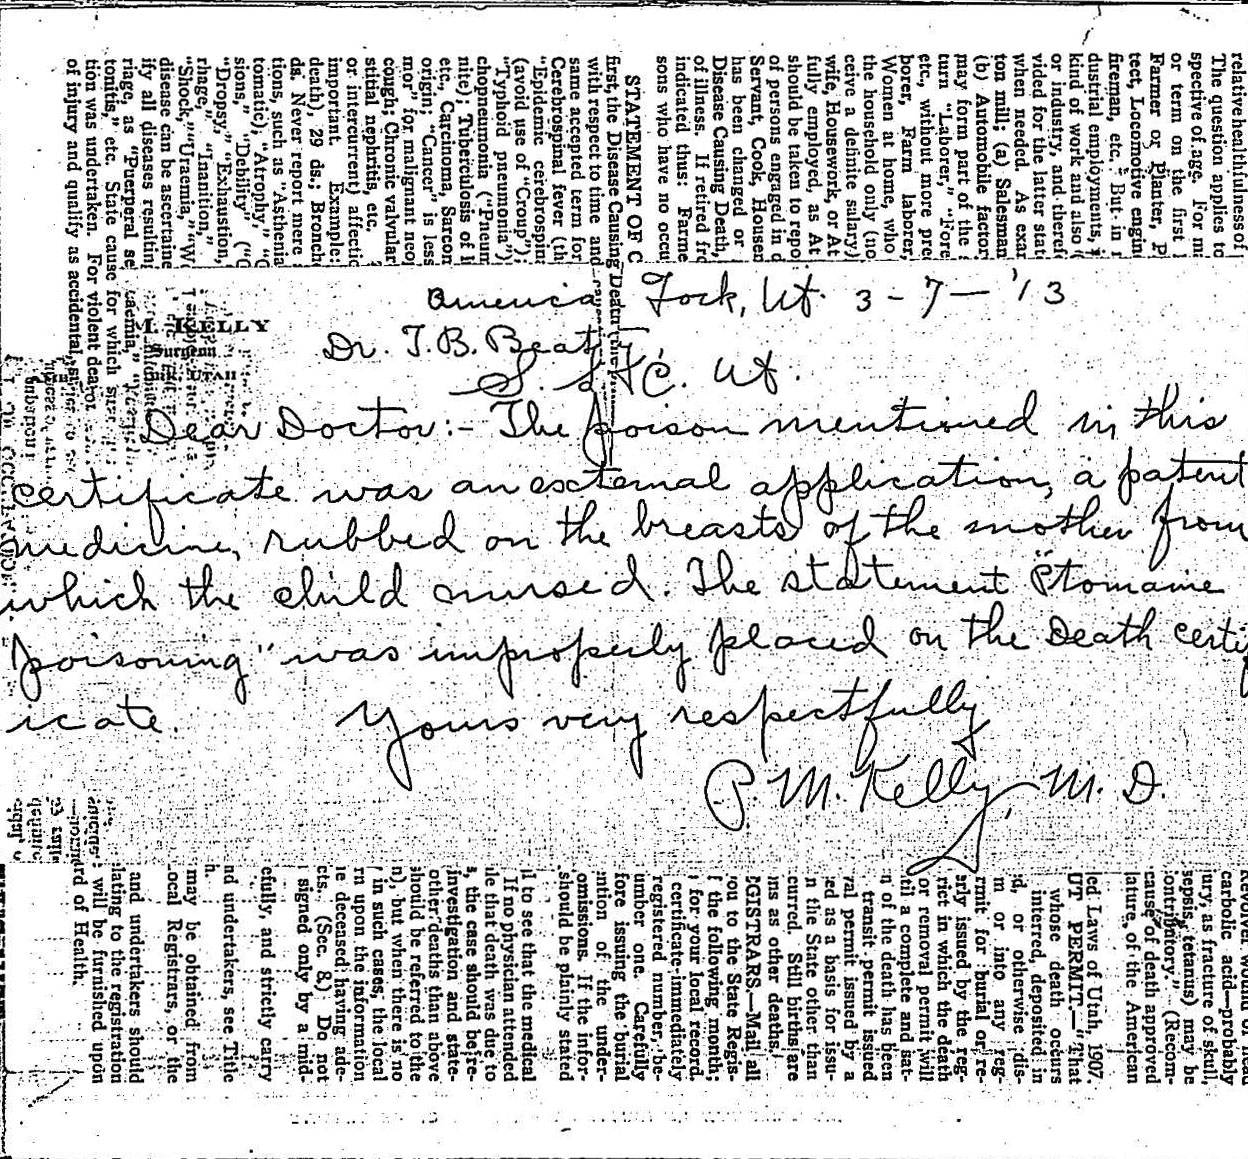 relative healthfulness of
The question applies to
spective of age. For m
or term on the first l
Farmer or Planter, P
tect, Locomotive engin
fireman, etc. But in m
dustrial employments, i
kind of work and also (
or industry, and therefo
vided for the latter stat
when needed. As exam
ton mill; (a) Salesman
(b) Automobile factor
may form part of the s
turn "Laborer," "Fore
etc., without more prec
borer, Farm laborer,
Women at home, who
the household only (no
ceive a definite salary)
wife, Housework, or At
fully employed, as At
should be taken to repo
of persons engaged in d
Servant, Cook, Housem
has been changed or
Disease Causing Death,
of illness. If retired fr
indicated thus: Farme
sons who have no occu
STATEMENT OF C
first, the Disease Causing Death
with respect to time and
same accepted term for
Cerebrospinal fever (th
"Epidemic cerebrospin
(avoid use of "Croup")
"Typhoid pneumonia")
chopneumonia ("Pneum
nite); Tuberculosis of l
etc., Carcinoma, Sarcom
origin; "Cancer" is less
mor" for malignant neo
cough; Chronic valvular
stitial nephritis, etc.
or intercurrent) affectio
important. Example:
death), 29 ds.; Bronch
ds. Never report mere s
such as "Asthenia
tomatic), "Atrophy,"
sions," "Debility" ("C
"Dropsy," "Exhaustion,"
rhage," "Inanition,"
"Shock," "Uraemia," "W
disease can be ascertaine
ify all diseases resulting
riage, as "Puerperal se
tonitis," etc. State cause for which
tion was undertaken. For violent
of injury and qualify as accidental,
M. KELLY
Surgeon
UTAH
America Fork, Ut. 3-7-'13
Dr. T.B. Beatty
S. L. C. Ut.
Dear Doctor:- The poison mentioned in this
certificate was an external application, a patent
medicine, rubbed on the breasts of the mother from
which the child nursed. The statement "Ptomaine
poisoning" was improperly placed on the Death certif
icate. Yours very respectfully
P. M. Kelly, M. D.
Revolver wound of head
carbolic acid—probably
jury, as fracture of skull,
sepsis, tetanus) may be
ontributory." (Recom-
cause of death approved
lature, of the American
ed Laws of Utah, 1907.
UT PERMIT.—That
whose death occurs
interred, deposited in
d, or otherwise dis-
m or into any reg-
rmit for burial or re-
erly issued by the reg-
rict in which the death
or removal permit will
til a complete and sat-
n of the death has been
transit permit issued
val permit issued by a
ed as a basis for issu-
n the State other than
curred. Still births are
ns as other deaths.
EGISTRARS.—Mail all
ou to the State Regis-
f the following month;
for your local record.
certificate immediately
registered number, be-
umber one. Carefully
fore issuing the burial
ntion of the under-
omissions. If the infor-
should be plainly stated
il to see that the medical
If no physician attended
le that death was due to
s, the case should be re-
investigation and state-
other deaths than above
should be referred to the
n), but when there is no
in such cases, the local
rn upon the information
e deceased having ade-
cts. (Sec. 8.) Do not
signed only by a mid-
efully, and strictly carry
nd undertakers, see Title
h.
may be obtained from
ocal Registrars, or the
and undertakers should
lating to the registration
will be furnished upon
rd of Health.